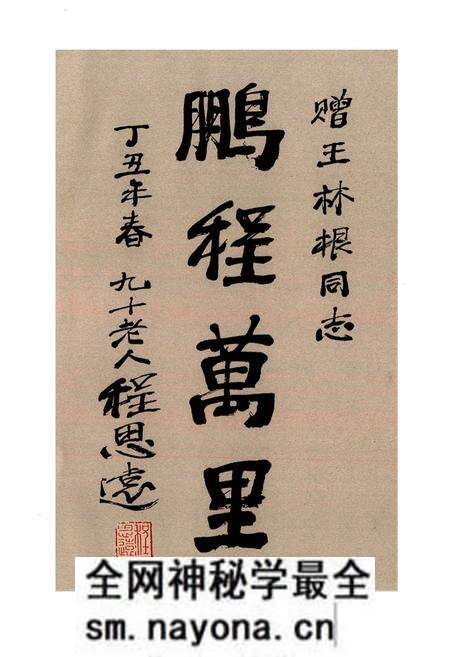 赠王林根同志
鹏程萬里
丁丑年春 九十老人程思远
全网神秘学最全
sm.nayona.cn